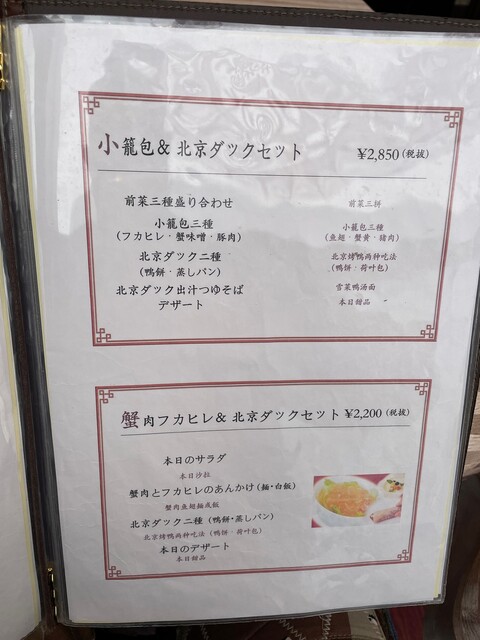 小籠包& 北京ダックセット ¥2,850(税抜)
前菜三種盛り合わせ 前菜三拼
小籠包三種 小籠包三種
(フカヒレ・蟹味噌・豚肉) (魚翅・蟹黄・猪肉)
北京ダック二種 北京烤鴨两种吃法
(鴨餅・蒸しパン) (鴨餅・荷叶包)
北京ダック出汁つゆそば 雪菜鴨汤面
デザート 本日甜品
蟹肉フカヒレ& 北京ダックセット ¥2,200(税抜)
本日のサラダ
本日沙拉
蟹肉とフカヒレのあんかけ(麺・白飯)
蟹肉魚翅麺或飯
北京ダック二種 (鴨餅・蒸しパン)
北京烤鴨两种吃法 (鴨餅・荷叶包)
本日のデザート
本日甜品